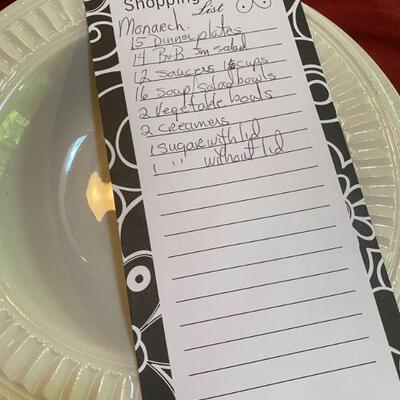 Shopping List
Monarch
15 Dinner plates
14 B+B Sm salad
12 Saucers 16 cups
16 Soup/Salad bowls
2 vegetable bowls
2 creamers
1 Sugar with lid
1 " without lid